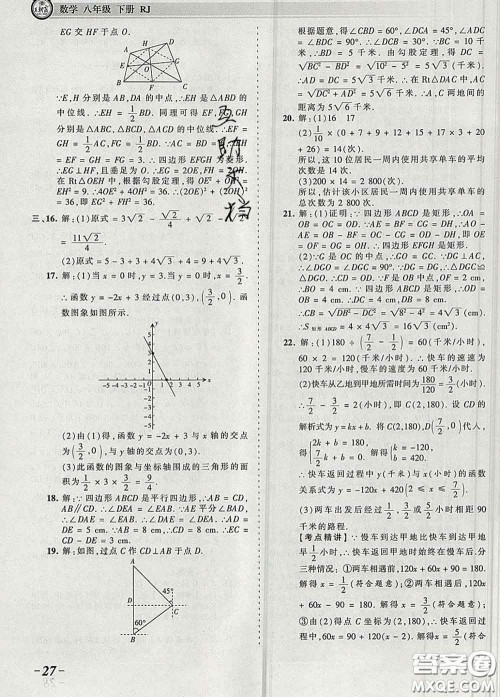 数学 八年级 下册 RJ
EG 交 HF 于点 O.
∵E,H 分别是 AB,DA 的中点,∴EH 是△ABD 的
中位线.∴EH = 1/2 BD. 同理可得 EF,GH,FG
分别是 △ABC, △ACD, △BCD 的中位线.∴EF =
GH = 1/2 AC, FG = 1/2 BD. 又∵AC = BD = 6, ∴EF
= EH = GH = FG = 3. ∴四边形 EFGH 为菱形.
∴EG⊥HF,且垂足为 O.∴EG = 2OE,FH = 2OH.
在 Rt△OEH 中,根据勾股定理,得 OE² + OH² =
EH² = 9.∴4OE² + 4OH² = 36.∴(2OE)² + (2OH)²
= 36,即 EG² + FH² = 36.
三、16. 解:(1)原式 = 3√2 - √2/4
= 11√2/4.
(2)原式 = 5 - 3 + 3 + 4 =
17. 解:(1)当 x = 0 时,y = 3.当 y = 0 时,x = 3/2.
∴函数 y = -2x + 3 经过点(0,3),(3/2,0).
函数图象如图所示.
(2)由(1)得,函数 y = -2x + 3 与 x 轴的交点
为(3/2,0),与 y 轴的交点为(0,3).
(3)此函数的图象与坐标轴围成的三角形的面
积为 1/2 × 3 × 3/2 = 9/4.
18. 解:∵四边形 ABCD 是平行四边形,∴AB = CD,
AB∥CD. ∴∠DEA = ∠EAB. ∵AE 平分∠BAD,
∴∠DAE = ∠EAB. ∴∠DAE = ∠DEA. ∴AD =
DE = 5 cm. ∵AB = 8 cm,∴CD = 8 cm. ∴EC =
CD - DE = 3 cm.
19. 解:如图,过点 C 作 CD⊥AB 于点 D.
A
45°
D
C
60°
B
27
根据题意,得∠CBD = 60°,∠BDC = 90°,
∴∠BCD = 30°. ∴BD = 1/2 BC = 5√2 千米.
在 Rt△BCD 中,由勾股定理,得 CD =
√(BC² - BD²) = √((10√2)² - (5√2)²) = 5√6 (千米).
∴AD = CD = 5√6 千米. 在 Rt△DAC 中,AC =
√2 CD = 5√2 × √3 = 10√3 (千米).∴A,C 两地间的
距离为
20. 解:(1)16 17
(2) 1/10 × (0 + 7 + 9 + 12 + 15 + 17 × 3 +
26) = 14(次).
所以,这 10 位居民一周内使用共享单车的平均
次数是 14 次.
(3)200 × 14 = 2 800(次).
所以,估计该小区居民一周内使用共享单车的
总次数为 2 800 次.
21. 解:(1)证明:∵四边形 ABCD 是矩形,∴OA =
OB = OC = OD. ∵AE = BF = CG = DH, ∴AO -
AE = OB - BF = CO - CG = DO - DH,即 OE =
OF = OG = OH.∴四边形 EFGH 是矩形.
(2)∵G 是 OC 的中点,∴GO = GC. ∵DG⊥AC,
∴∠DGO = ∠DGC = 90°. 又∵DG = DG,∴△DGC≌
△DGO. ∴CD = OD. ∵四边形 ABCD 是矩形,
∴OD = OB = OC = 4 cm. ∴DB = 8 cm.
∴CB = √(DB² - DC²) = √(8² - 4²) = 4√3 (cm).
∴S矩形ABCD = 4 × 4√3 = 16√3 (cm²).
22. 解:(1)180 ÷ (7/2 - 1/2) = 60(千米/小时),
60 × 2 = 120(千米/小时).∴快车的速度为
120 千米/小时,慢车的速度是 60 千米/小时.
(2)快车从乙地到甲地所需时间为 180/120 = 3/2(小时),
∴ 7/2 - 3/2 = 2(小时),即 C(2,180). 设 CD 的
解析式为 y = kx + b. 将 C(2,180),D(7/2,0)代入,
得 {2k + b = 180, 7/2 k + b = 0. 解得 {k = -120, b = 420.
∴快车返回过程中 y(千米)与 x(小时)的函数
关系式为 y = -120x + 420 (2 ≤ x ≤ 7/2).
(3)两车出发后经过 1/2 或 3/2 或 11/6 小时相距 90
千米的路程.
【考点精讲】∵慢车到达甲地比快车到达甲地
早 1/2 小时,∴快车返回甲地时始终在慢车后方.
分三种情况:①两车相遇前,120x + 60x + 90 = 180.
解得 x = 1/2(符合题意);②两车相遇后,
120x + 60x - 90 = 180. 解得 x = 3/2(符合题意);
③由(2)得点 C 坐标为(2,180),120x - 60x = 90.
解得
互
助
答案圈
MXQE.COM